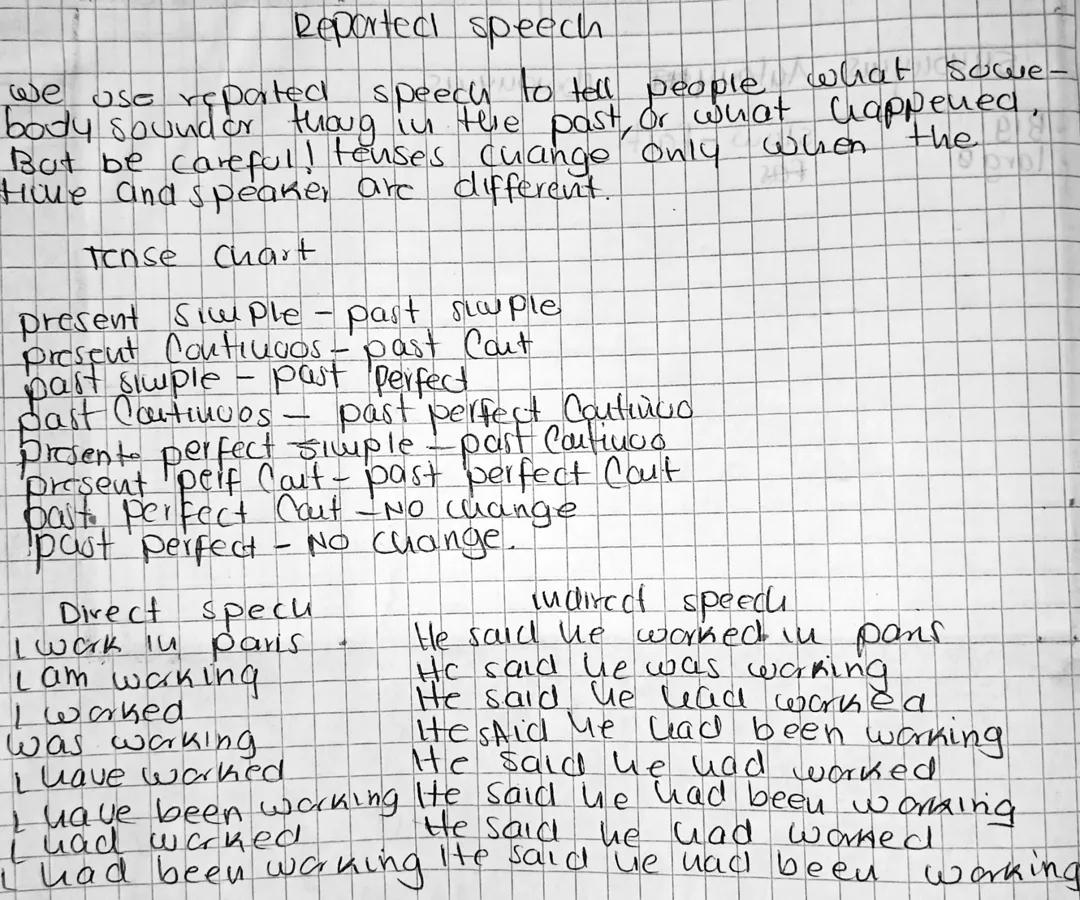 Reported speech
we use reported speech to tell people what some-
body sound or thoug in the past, or what happened,
But be careful! tenses change only when the
time and speaker are different.
Tense chart
present simple - past simple
present Continuos - past Cont
past simple - past perfect
past Continuos - past perfect Continuo
presente perfect simple - past Continuo
present perf Cont - past perfect Cont
past perfect Cont - NO change
past perfect - NO change.
Direct spech indirect speech
I work in paris He said he worked in paris
I am working He said he was working
I worked He said he had worked
was working He sAid he had been working
I have worked He said he had worked
I have been working He said he had been working
I had worked He said he had worked
I had been working He said he had been working